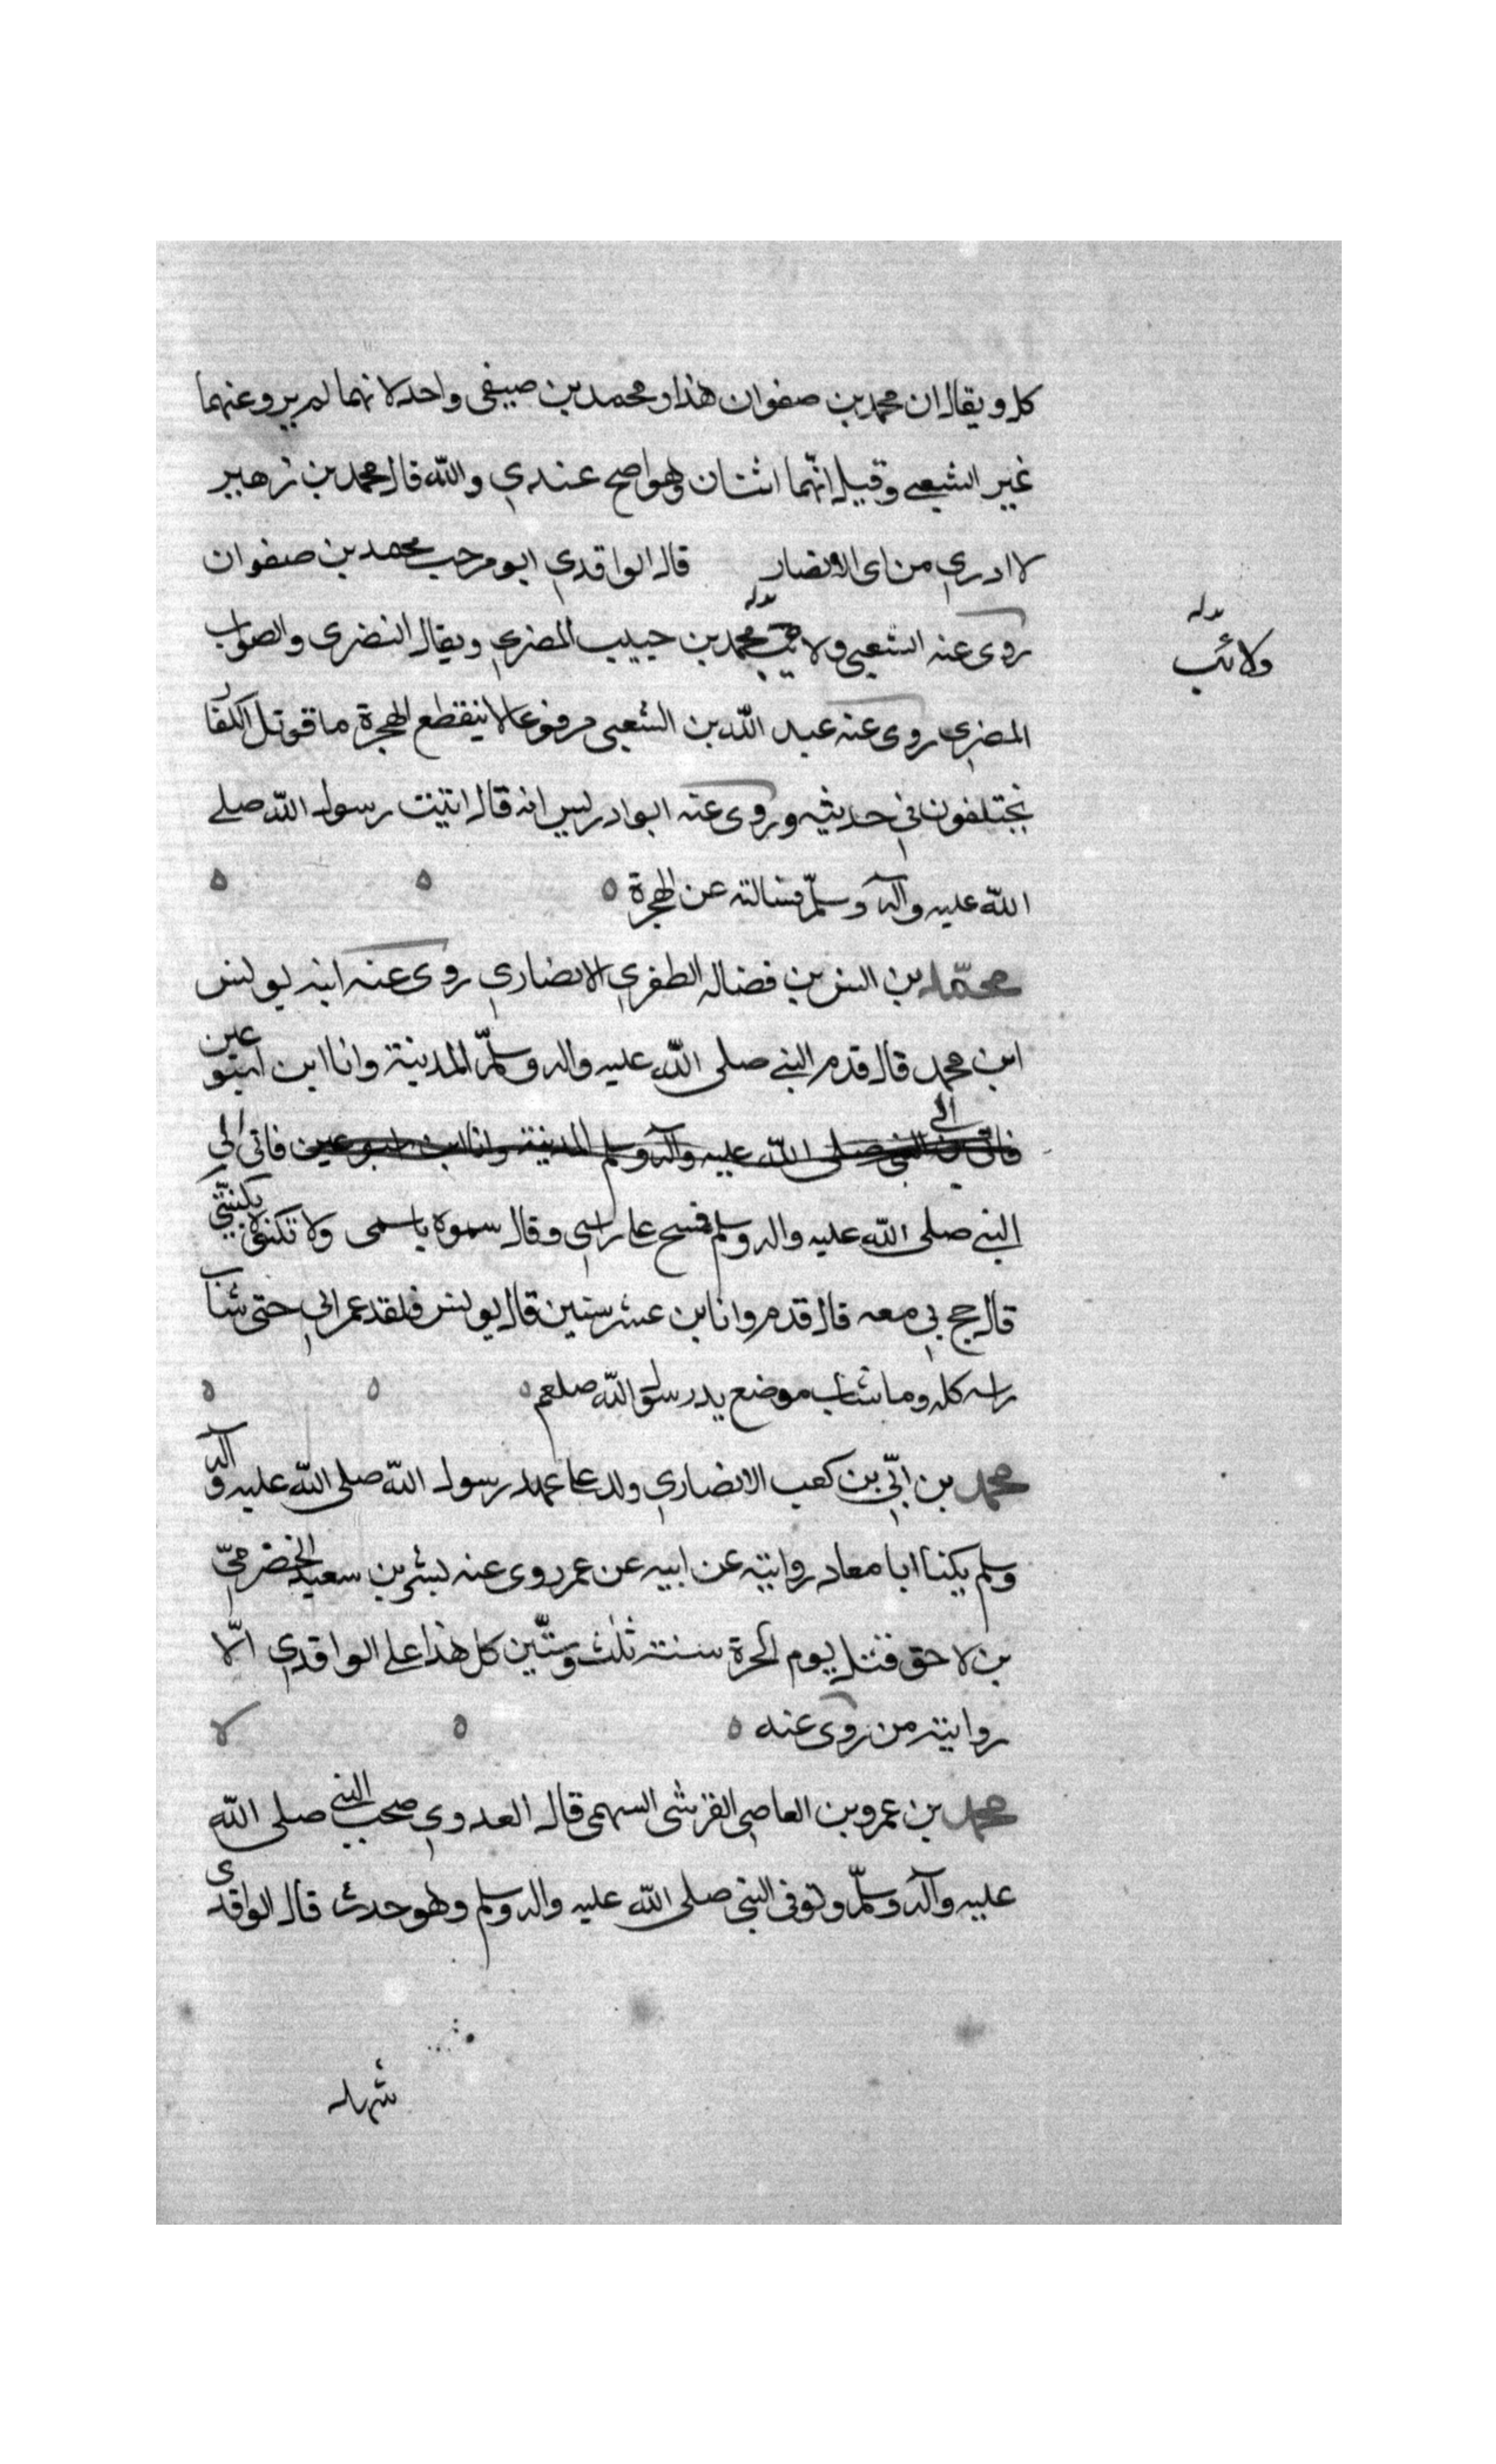 كل ويقال ان محمد بن صفوان هذا ومحمد بن صيفى واحد لانهما لم يرو عنهما
غير الشعبي وقيل انّهما اثنان وهو اصح عندي والله قال محمد بن زهير
لا ادري من اى الانصار قال الواقدي ابو مرحب محمد بن صفوان
روى عنه الشعبي ولا محمد بن حبيب المضري ويقال النضرى والصواب
ولا
المضري روى عنه عبد الله بن الشعبى مرفوعا لا ينقطع الهجرة ما قوتل الكفار
يختلفون في حديثه وروى عنه ابو ادريس انه قال اتيت رسول الله صلى
الله عليه وآله وسلّم فسالته عن الهجرة
محمّد بن انس بن فضاله الطفري الانصاري روى عنه ابنه يونس
ابن محمد قال قدم النبي صلى الله عليه واله وسلّم المدينة وانا ابن اسبوعين
فاتى بي الى النبي صلى الله عليه وآله وسلم المدينة وانا ابن اسبوعين فاتى الي
النبي صلى الله عليه واله وسلم فمسح على راسي وقال سموه باسمى ولا تكنوه بكنيّتي
قال حج بي معه قال قدم وانا بن عشر سنين قال يونس فلقد عمر ابي حتى شاب
راسه كله وما شاب موضع يد رسول الله صلعم
محمد بن ابّي بن كعب الانصاري ولد على عهد رسول الله صلى الله عليه وآله
وسلم يكنا ابا معاد روايته عن ابيه عن عمر روى عنه بشر بن سعيد الحضرميّ
بن لاحق قتل يوم الحرة سنة ثلث وستّين كل هذا على الواقدي الّا
روايته من روى عنه
محمد بن عمرو بن العاصي القرشى السهمى قال العدوي صحب النبي صلى الله
عليه وآله وسلّم وتوفى النبي صلى الله عليه واله وسلم وهو حدث قال الواقدى
شهد